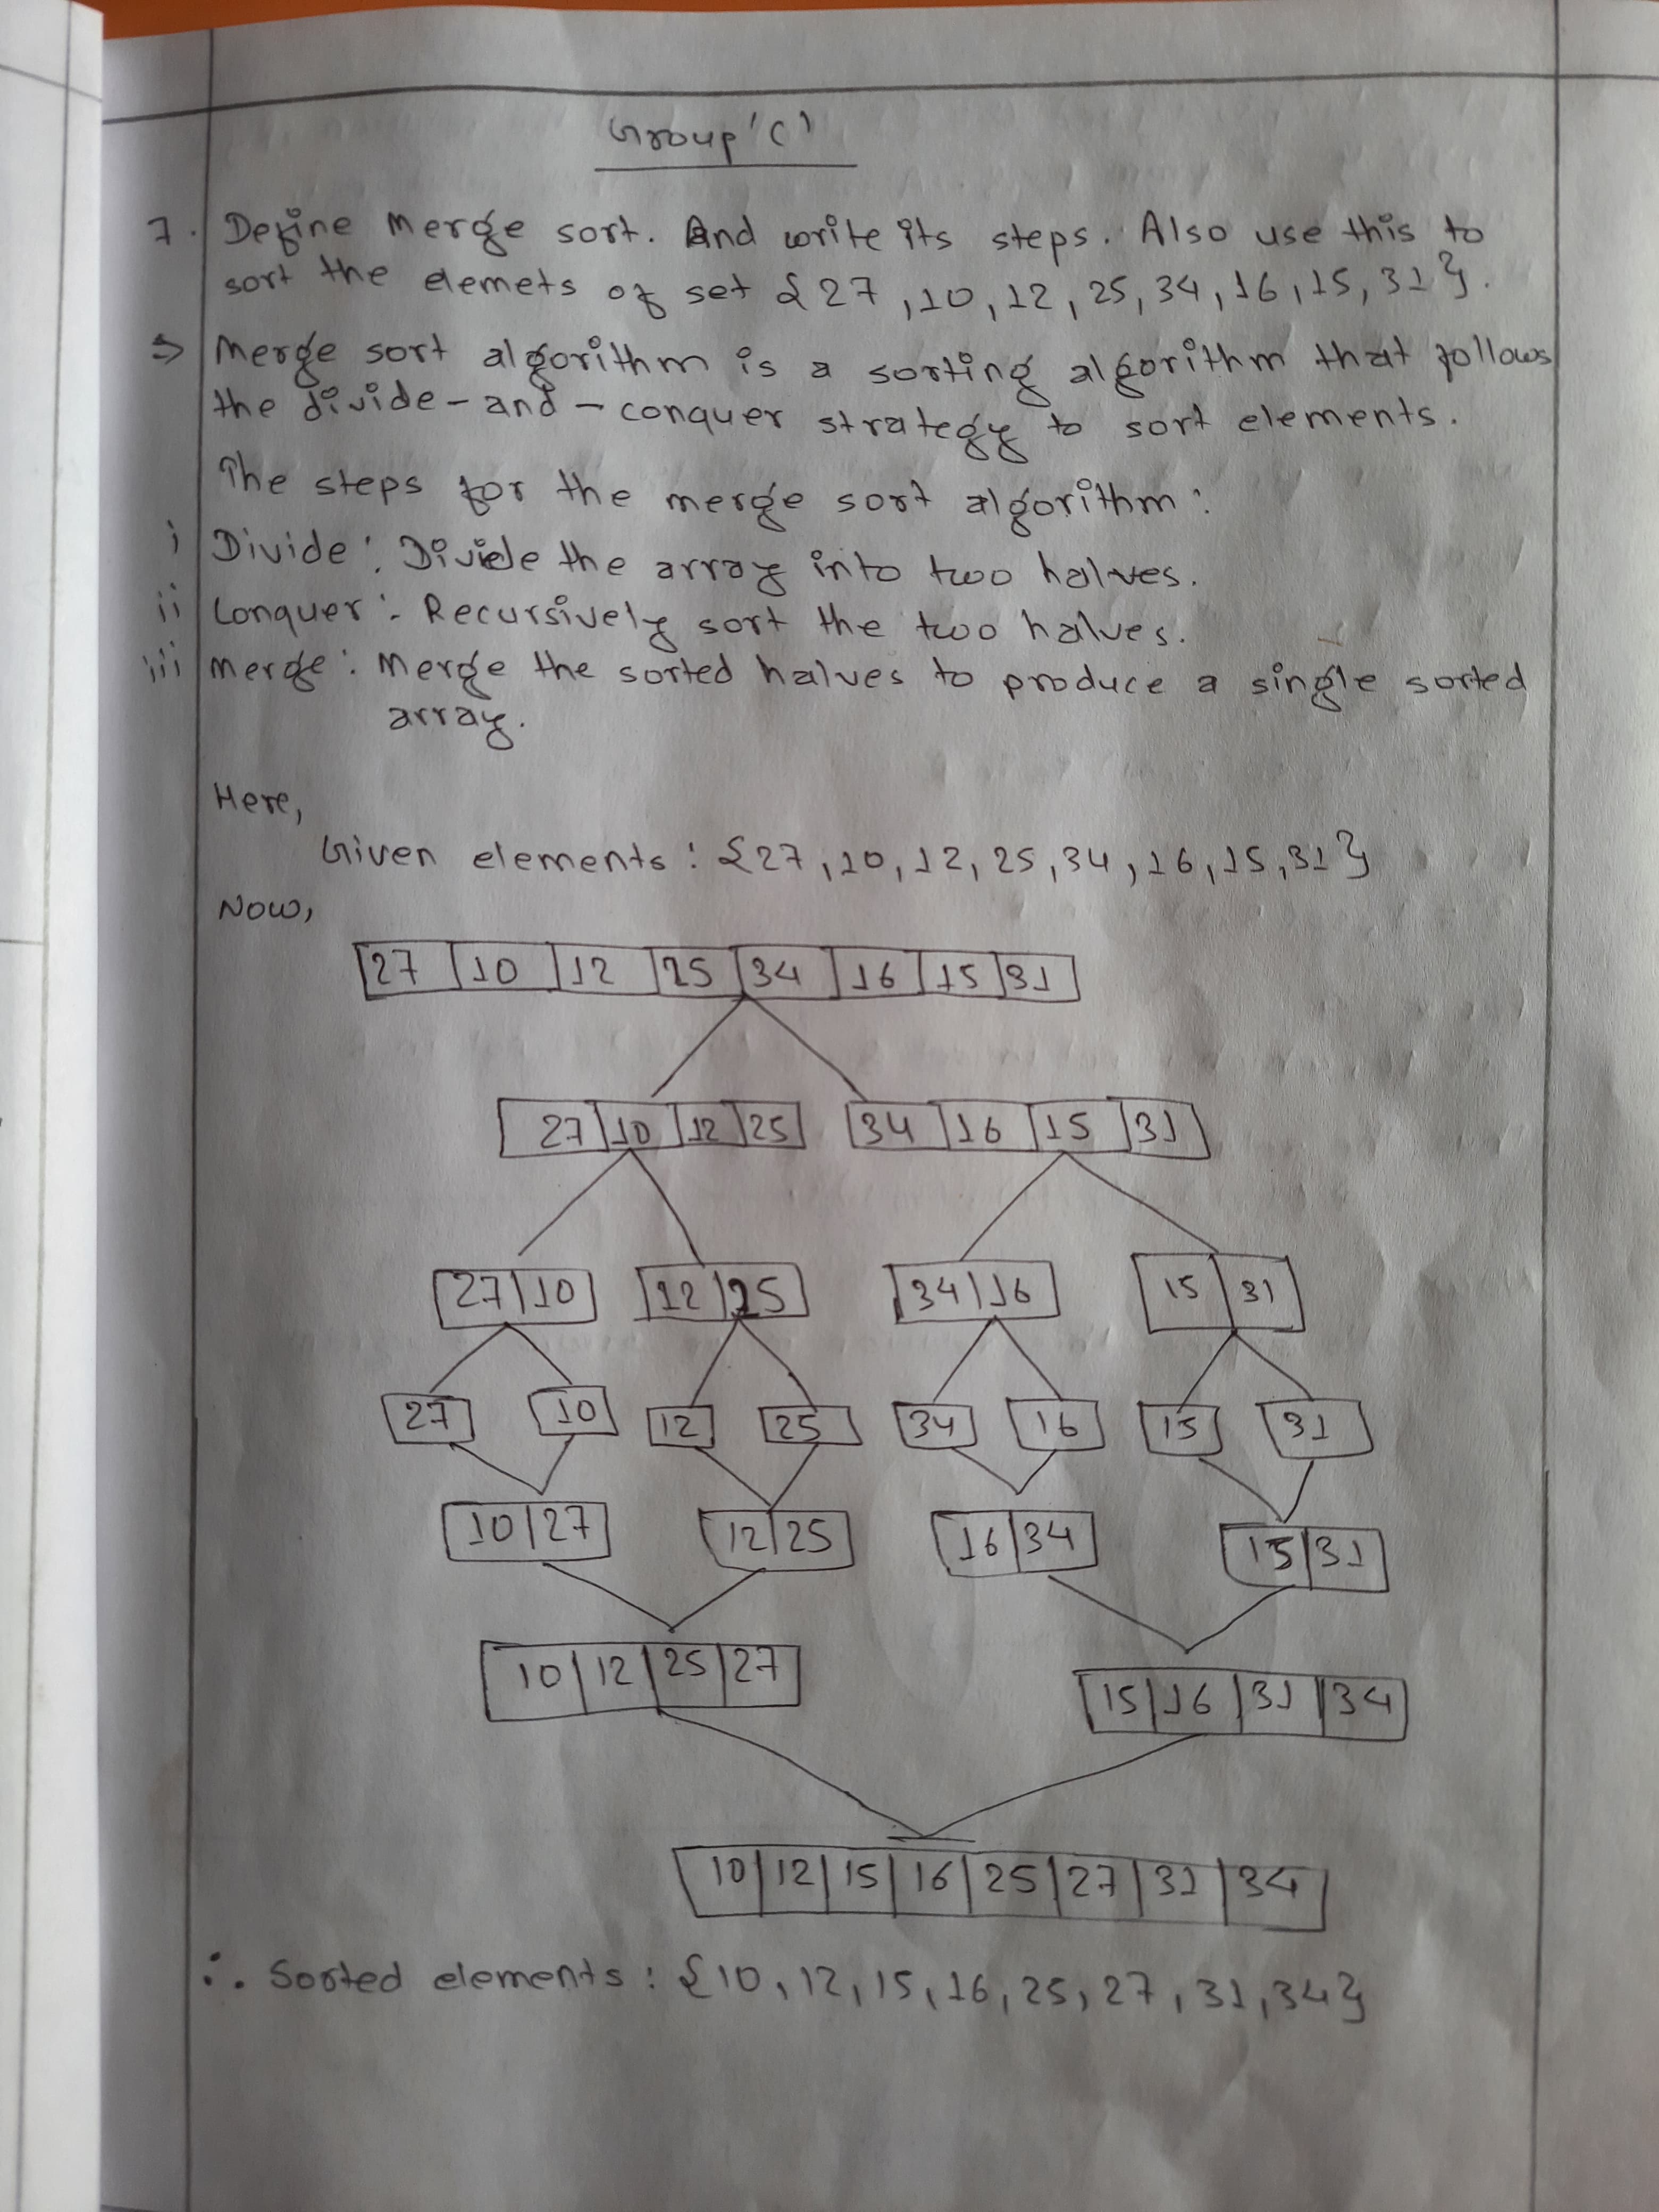 Group 'C'
7. Define Merge sort. And write its steps. Also use this to
sort the elemets of set {27, 10, 12, 25, 34, 16, 15, 31}.
⇒ Merge sort algorithm is a sorting algorithm that follows
the divide-and-conquer strategy to sort elements.
The steps for the merge sort algorithm:
i Divide: Divide the array into two halves.
ii Conquer:- Recursively sort the two halves.
iii Merge: Merge the sorted halves to produce a single sorted
array.
Here,
Given elements: {27, 10, 12, 25, 34, 16, 15, 31}
Now,
27 10 12 25 34 16 15 31
27 10 12 25 34 16 15 31
27 10 12 25 34 16 15 31
27 10 12 25 34 16 15 31
10 27 12 25 16 34 15 31
10 12 25 27 15 16 31 34
10 12 15 16 25 27 31 34
∴ Sorted elements: {10, 12, 15, 16, 25, 27, 31, 34}